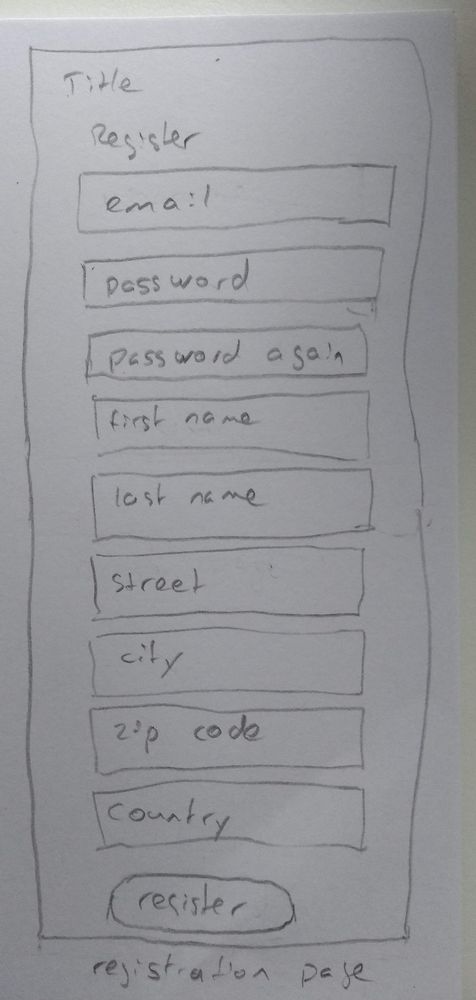 Title
Register
email
password
password again
first name
last name
street
city
zip code
country
register
registration page